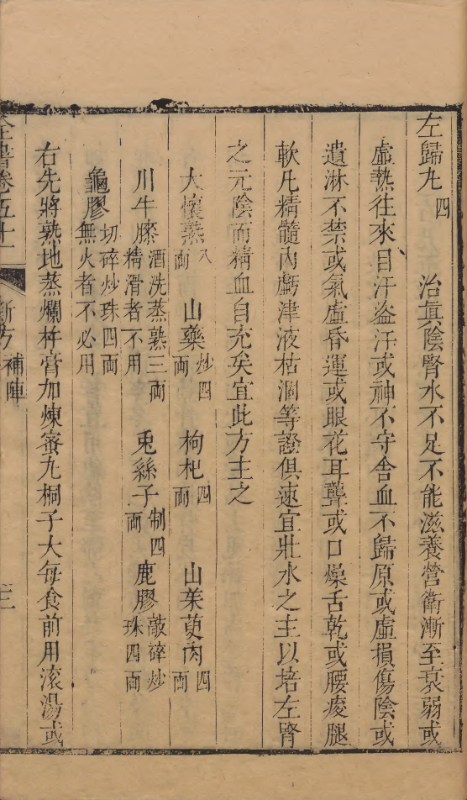 左歸丸四 治真陰腎水不足不能滋養營衛漸至衰弱或
虛熱往來自汗盜汗或神不守舍血不歸原或虛損傷陰或
遺淋不禁或氣虛昏運或眼花耳聾或口燥舌乾或腰痠腿
軟凡精髓內虧津液枯涸等證俱速宜壯水之主以培左腎
之元陰而精血自充矣宜此方主之
大懷熟八兩 山藥炒四兩 枸杞四兩 山茱萸肉四兩
川牛膝酒洗蒸熟三兩精滑者不用 兎絲子制四兩 鹿膠敲碎炒珠四兩
龜膠切碎炒珠四兩無火者不必用
右先將熟地蒸爛杵膏加煉蜜丸桐子大每食前用滾湯或
全書卷五十一 新方 補陣 三